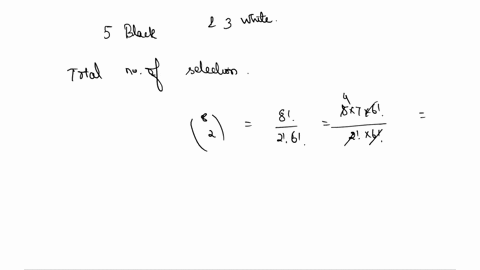 5 Black & 3 white.
Total no. of selection.
(8 2) = 8!/2!.6! = 4 8×7×6!/2!×6! =